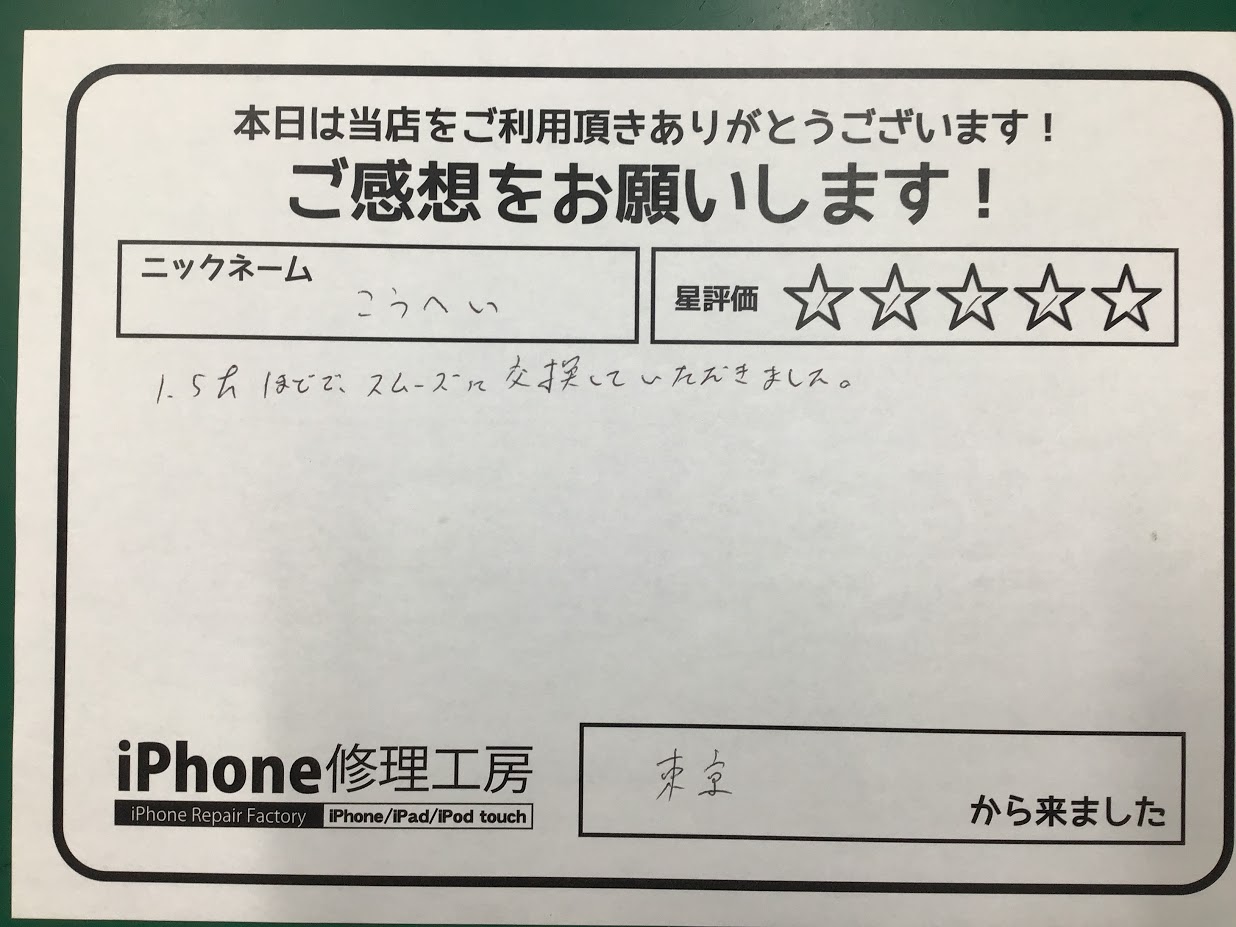 本日は当店をご利用頂きありがとうございます！
ご感想をお願いします！
ニックネーム
こうへい
星評価 ☆☆☆☆☆
1.5hほどで、スムーズに交換していただきました。
iPhone修理工房
iPhone Repair Factory iPhone/iPad/iPod touch
東京
から来ました